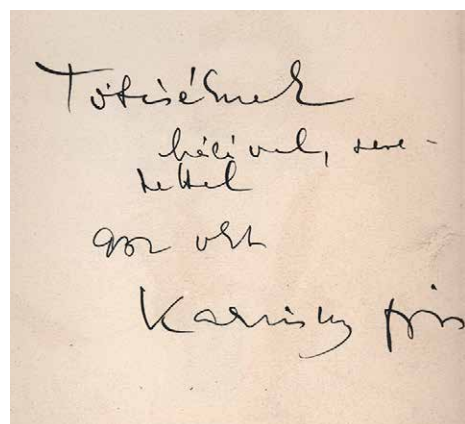 Tótiséknek
hálával, szere-
tettel
952 okt
Karinthy